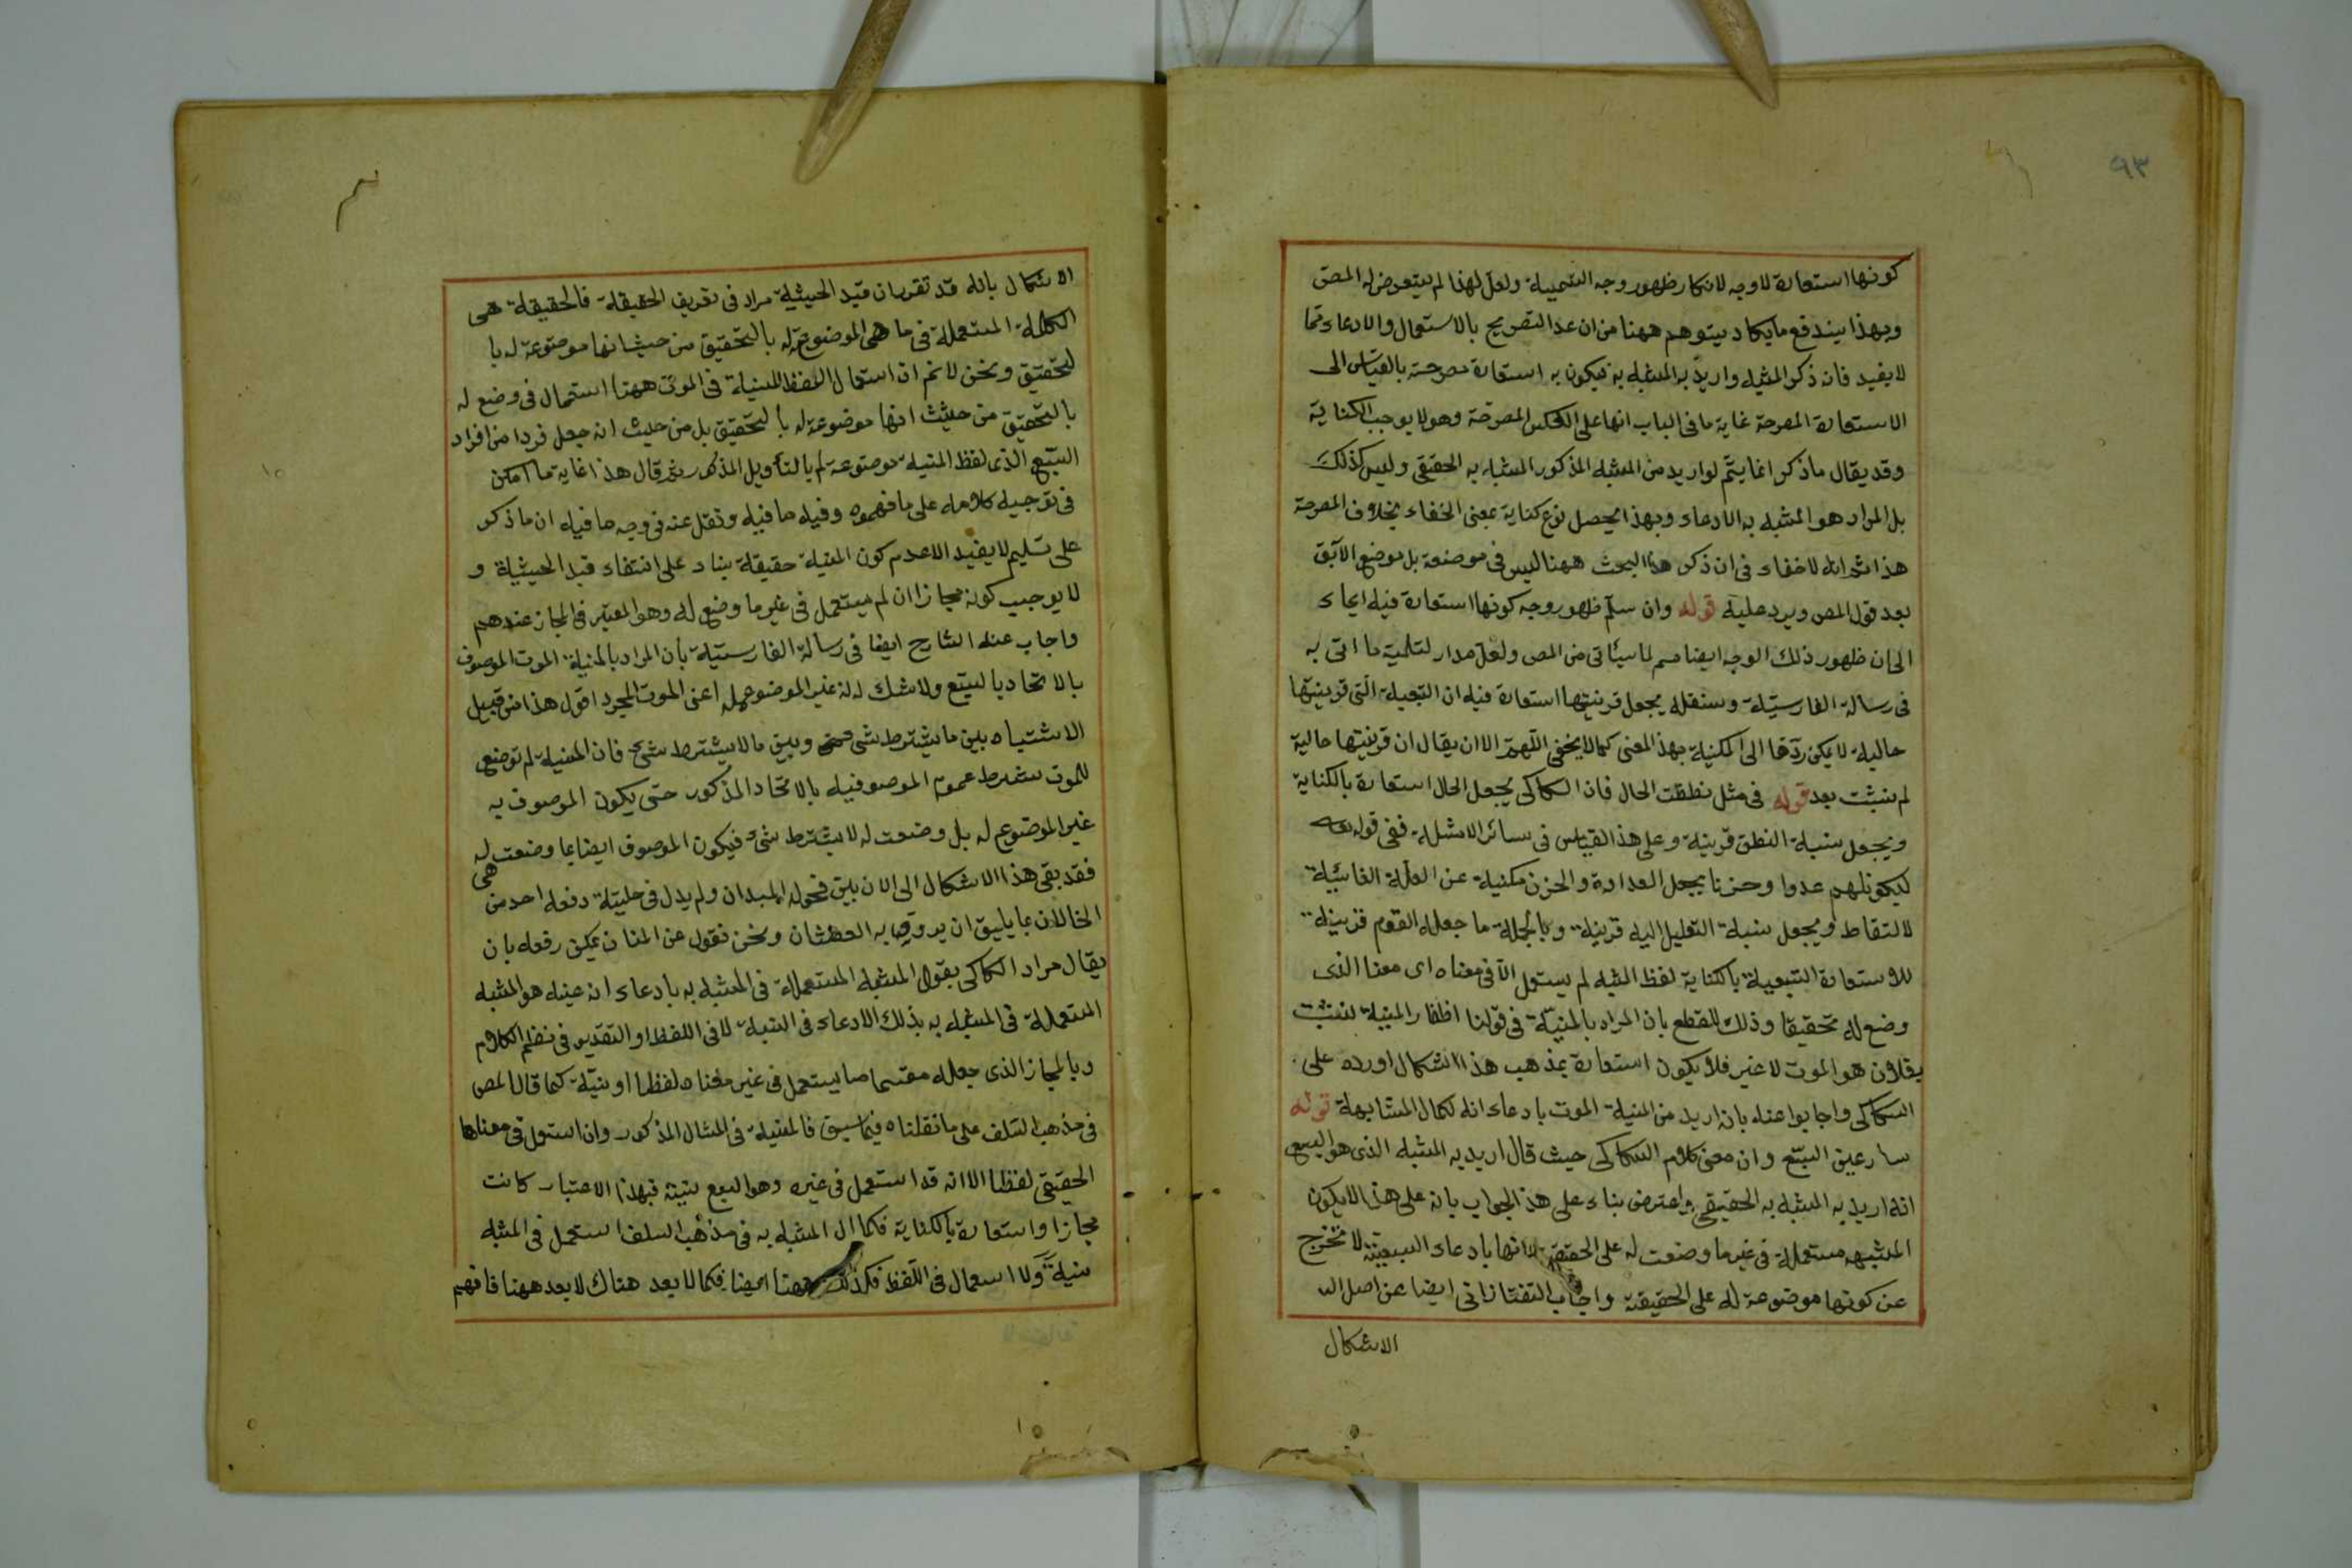 ٩٣
كونها استعارة لا وجه لانكار ظهور وجه التسمية ولعل لهذا لم يتعرض له المص
وبهذا يندفع ما يكاد يتوهم ههنا من ان عد التصريح بالاستعمال والادعاء مما
لا يفيد فانه ذكر المشبه واريد به المشبه به فيكون به استعارة مصرحة بالقياس الى
الاستعارة المصرحة غاية ما في الباب انها على العكس المصرحة وهو لا يوجب الكناية
وقد يقال ما ذكر انما يتم لو اريد من المشبه المذكور المشبه به الحقيقي وليس كذلك
بل المراد هو المشبه به الادعاء وبهذا يحصل نوع كناية بمعنى الخفاء بخلاف المصرحة
هذا ثم انه لا خفاء في ان ذكر هذا البحث ههنا ليس في موضعه بل موضع الآبق
بعد قول المص ويرد عليه قوله وان سلم ظهور وجه كونها استعارة فيه ايماء
الى ان ظهور ذلك الوجه ايضا مم لما سيأتي من المص ولعل مدار لتلمية ما اتى به
في رسالة الفارسية وسنقله يجعل قرينتها استعارة فيه ان التبعية التي قرينتها
حالية لا يمكن ردها الى المكنية بهذ المعنى كما لا يخفى اللهم الا ان يقال ان قرينتها حالية
لم يثبت بعد قوله في مثل نطقت الحال فان السكاكي يجعل الحال استعارة بالكناية
ويجعل نسبة النطق قرينة وعلى هذ القياس في سائر الامثلة ففي قوله تعالى
ليكون لهم عدوا وحزنا يجعل العداوة والحزن مكنية عن العلة الغائية
للالتقاط ويجعل نسبة التعليل اليه قرينة وبالجملة ما جعله القوم قرينة
للاستعارة التبعية بالكناية لفظ المشبه لم يستعمل الا في معناه اى معنا الذى
وضع له تحقيقا وذلك للقطع بان المراد بالمنية في قولنا اظفار المنية نشبت
بفلان هو الموت لا غير فلا يكون استعارة بمذهب هذا الاشكال اورده على
السكاكي واجابوا عنه بانه اريد من المنية الموت بادعاء انه لكمال المشابهة قوله
سار عين السبع وان معنى كلام السكاكي حيث قال اريد به المشبه الذى هو السبع
انه اريد به المشبه به الحقيقي واعترض بناء على هذ الجواب بانه على هذا لا يكون
المشبه مستعملة في غير ما وضعت له على الحقيقة لانها بادعاء السبعية لا تخرج
عن كونها موضوعة له على الحقيقة واجاب التفتازاني ايضا عن اصل الا
الاشكال
الاشكال بانه قد تقرر ان قيد الحيثية مراد في تعريف الحقيقة فالحقيقة هى
الكلمة المستعملة في ما هى الموضوعة له بالتحقيق من حيث انها موضوعة له با
لتحقيق ونحن لا نم ان استعمال اللفظ المنية في الموت ههنا استعمال في وضع له
بالتحقيق من حيث انها موضوعة له بالتحقيق بل من حيث انه جعل فردا من افراد
السبع الذى لفظ المنية موضوعة له بالتأويل المذكور ثم قال هذا غاية ما امكن
في توجيه كلامه على ما فهموه وفيه ما فيه ونقل عنه في وجه ما فيه ان ما ذكر
على تسليمه لا يفيد الا عدم كون المنية حقيقة بناء على انتفاء قيد الحيثية و
لا يوجب كونه مجازا ان لم يستعمل في غير ما وضع له وهو المعتبر في المجاز عندهم
واجاب عنه الشارح ايضا في رسالة الفارسية بأن المراد بالمنية الموت الموصوف
بالاتحاد بالسبع ولا شك انه غير الموضوع له اعنى الموت المجرد اقول هذا من قبيل
الاشتباه بين ما يشترط شئ وبين ما لا يشترط شئ فان المنية لم توضع
للموت بشرط عموم الموصوفيه بالاتحاد المذكور حتى يكون الموصوف به
غير الموضوع له بل وضعت له لا بشرط شئ فيكون الموصوف ايضا مما وضعت له هى
فقد بقى هذا الاشكال الى الان بين فحول الميدان ولم يدل في حليته دفعه احد من
الخلان بما يليق ان يروى به العطشان ونحن نقول عن المنان يمكن رفعه بان
يقال مراد السكاكي بقوله المشبه المستعملة في المشبه به بادعاء انه عينه هو المشبه
المستعملة في المشبه به بذلك الادعاء في النية لا في اللفظ او التقدير في نظم الكلام
وبالمجاز الذى جعله مقسما ما يستعمل في غير معناه لفظا او نية كما قال المص
في مذهب السلف على ما نقلناه فيما سبق فالمنية في المثال المذكور وان استعمل في معناها
الحقيقى لفظا الا انه قد استعمل في غيره وهو السبع بنيته فبهذا الاعتبار كانت
مجازا واستعارة بالكناية فكما ان المشبه به في مذهب السلف استعمل في المشبه
بنية ولا استعمال في اللفظ فكذلك ههنا ايضا فكما لا يعد هناك لا يعد ههنا فافهم